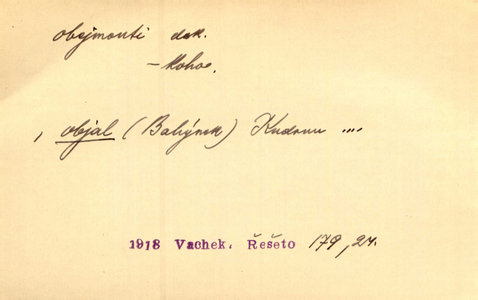 obejmouti dok.
– koho.
, objal (Balýnek) Kudrnu ....
1918 Vachek, Řešeto 179, 24.